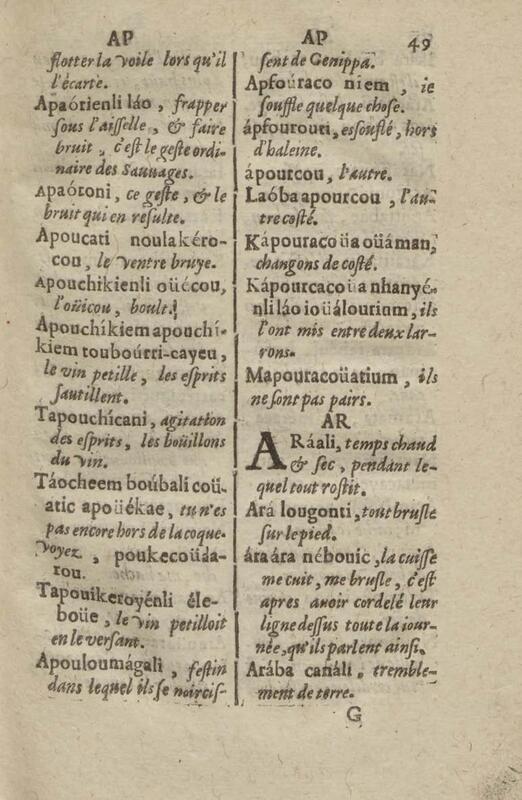 AP
AP
49
flotter la voile lors qu'il
l'écarte.
Apaórienli láo, frapper
sous l'aisselle, & faire
bruit, c'est le geste ordi-
naire des Sauuages.
Apaótoni, ce geste, & le
bruit qui en résulte.
Apoucati noulakéro-
cou, le ventre bruye.
Apouchikienli oüécou,
l'oüicou, boult.
Apouchíkiem apouchí-
kiem touboúrri-cayeu,
le vin petille, les esprits
sautillent.
Tapouchícani, agitation
des esprits, les boüillons
du vin.
Táocheem boúbali coü-
atic apoüékae, tu n'es
pas encore hors de la coque.
Voyez, poukecoüda-
rou.
Tapouikeroyénli éle-
boüe, le vin petilloit
en le versant.
Apouloumágali, festin
dans lequel ils se noircis-
sent de Genippa.
Apfouraco niem, ie
souffle quelque chose.
ápfourouti, essouflé, hors
d'haleine.
ápourcou, l'autre.
Laóba apourcou, l'au-
tre costé.
Kápouracoüa oüáman,
changons de costé.
Kápourcacoüa nhanyé-
nli láo ioüálourium, ils
l'ont mis entre deux lar-
rons.
Mapouracoüatium, ils
ne sont pas pairs.
AR
ARáali, temps chaud
& sec, pendant le-
quel tout rostit.
Ará lougonti, tout brusle
sur le pied.
ára ára nébouic, la cuisse
me cuit, me brusle, c'est
apres auoir cordelé leur
ligne dessus toute la iour-
née, qu'ils parlent ainsi.
Arába canáli, tremble-
ment de terre.
G